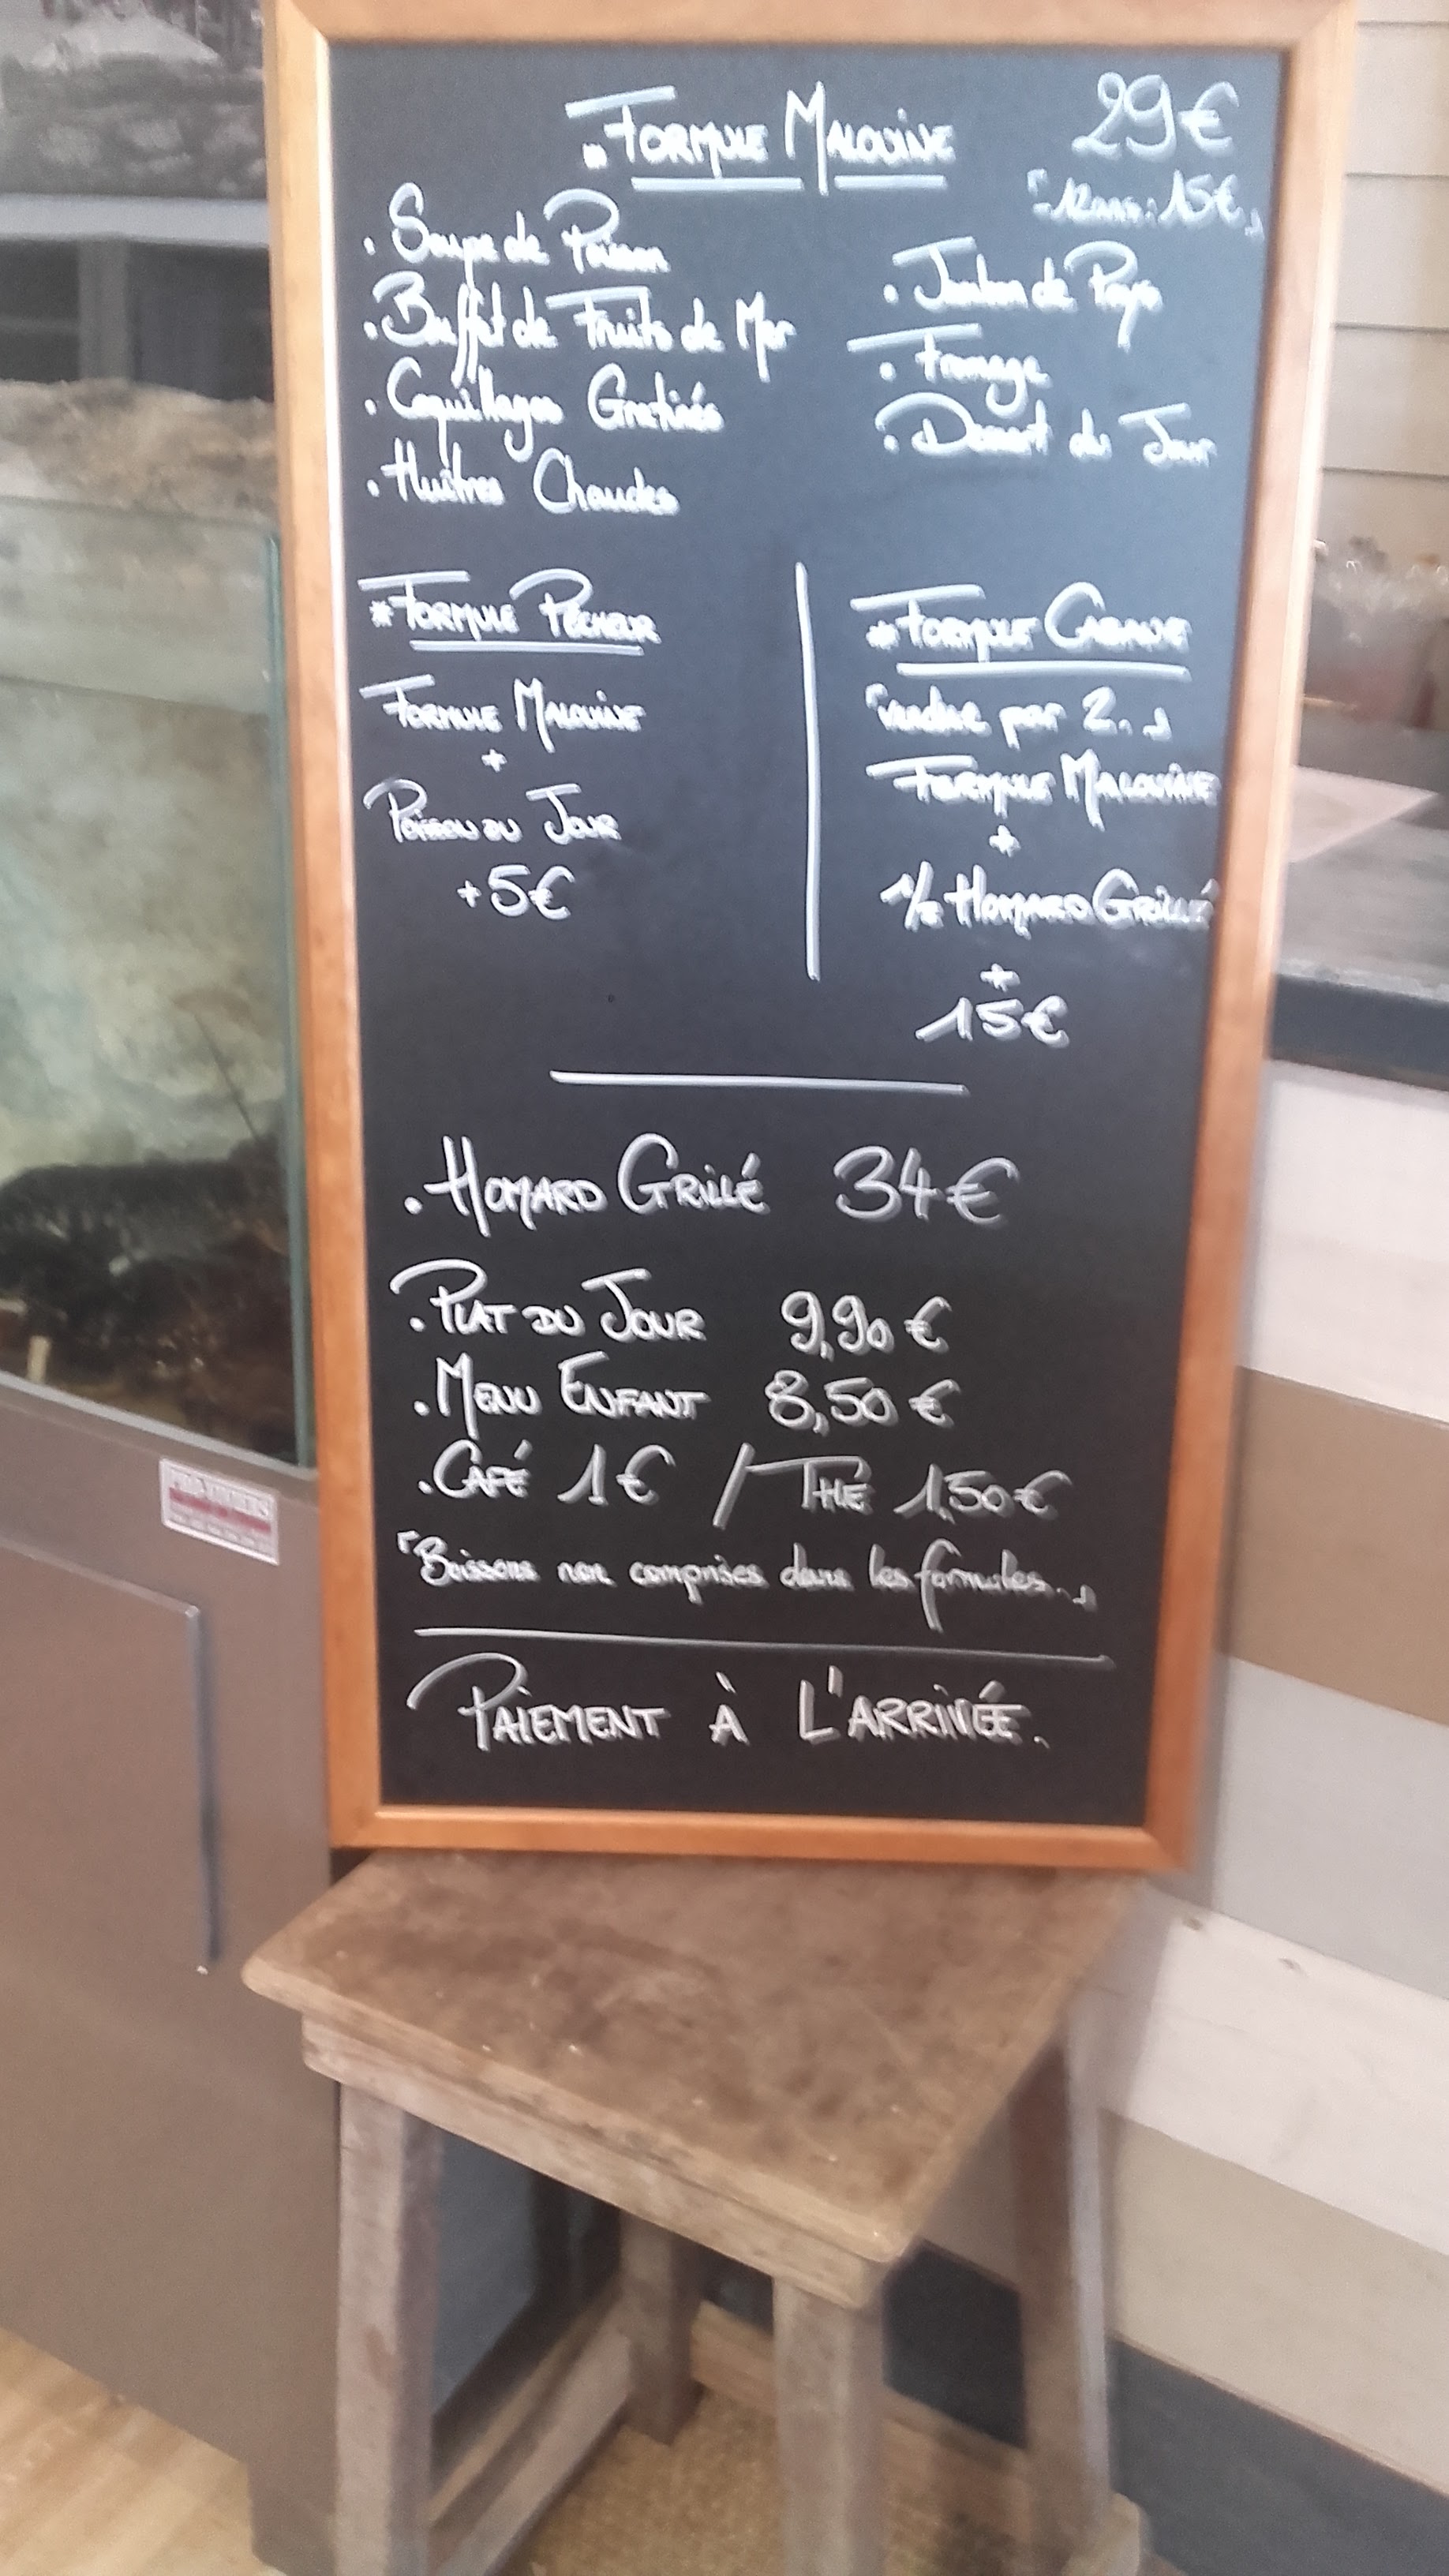 . Formule Malouine 29€
"-12ans: 15€"
. Soupe de Poisson
. Buffet de Fruits de Mer
. Coquillages Gratinés
. Huîtres Chaudes
. Jambon de Pays
. Fromage
. Dessert du Jour
* Formule Pêcheur
Formule Malouine
+
Poisson du Jour
+5€
* Formule Cabane
"vendue par 2.."
Formule Malouine
+
1/2 Homard Grillé
+
15€
. Homard Grillé 34€
. Plat du Jour 9,90€
. Menu Enfant 8,50€
. Café 1€ / Thé 1,50€
"Boissons non comprises dans les formules..."
Paiement à l'arrivée.